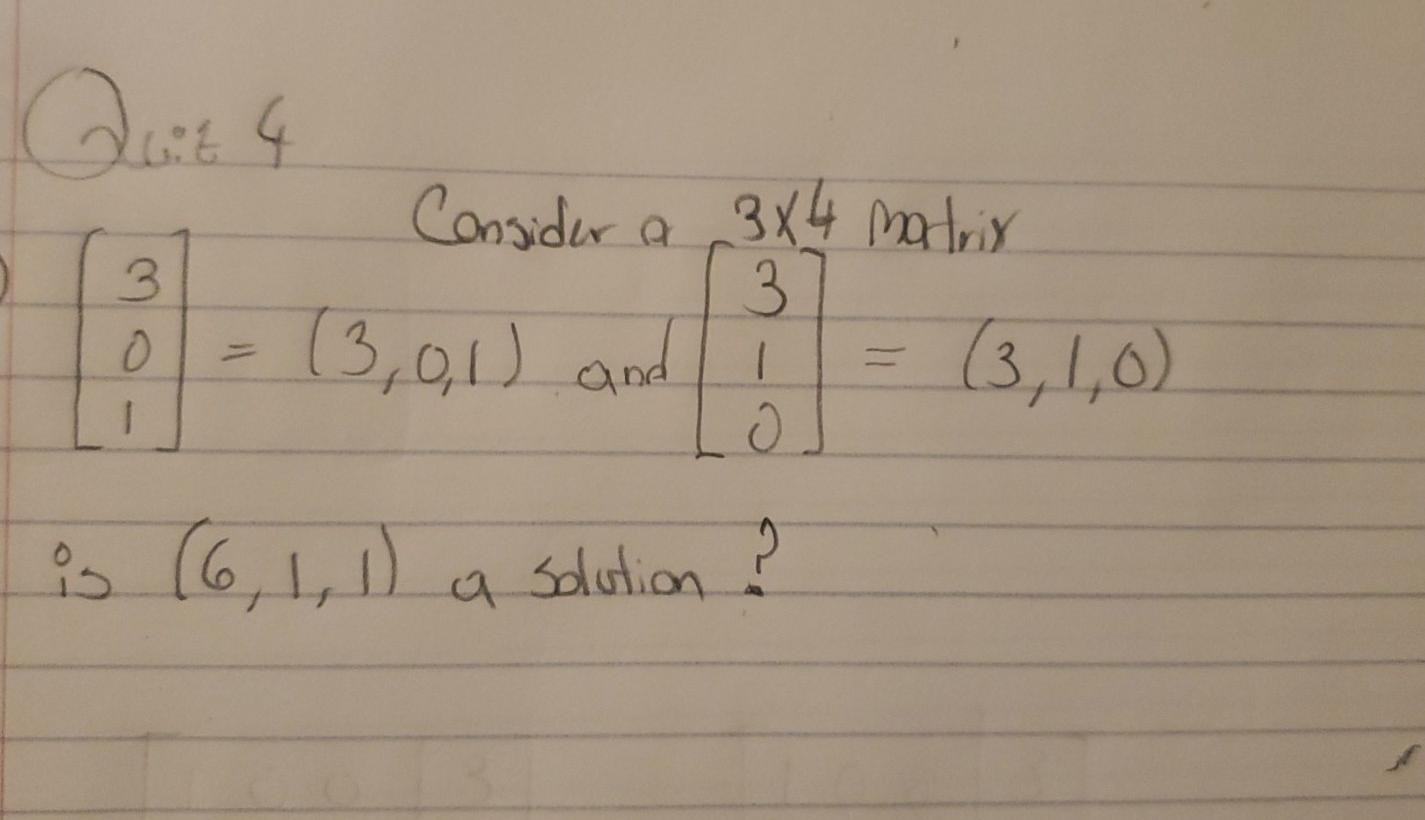 Quiz 4
Consider a 3x4 matrix
[3 0 1] = (3,0,1) and [3 1 0] = (3,1,0)
is (6,1,1) a solution?